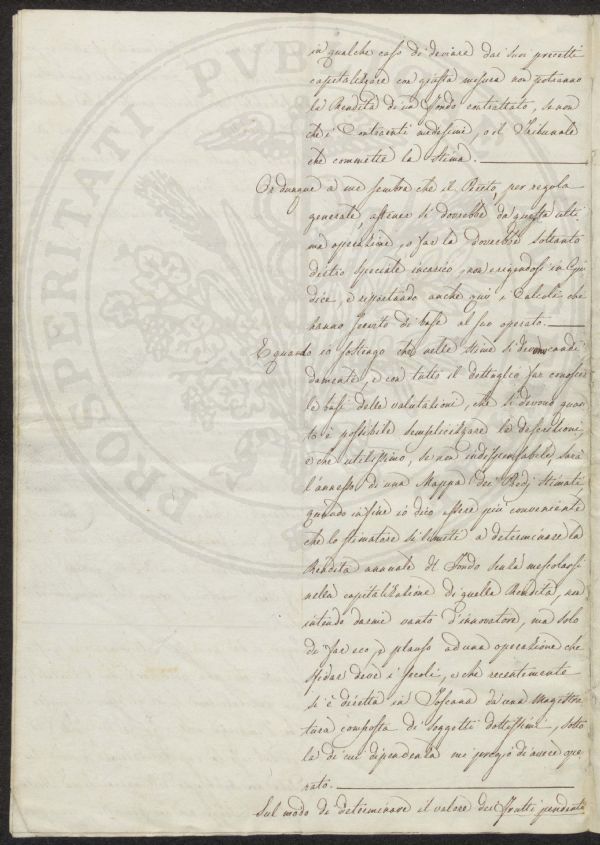 in qualche caso di deviare dai suoi precetti
capitalizzare con giusta misura non potranno
la Rendita di un Fondo contrattato, se non
che i Contraenti medesimi, o il Tribunale
che commette la stima.
Or dunque a me sembra che il Perito, per regola
generale, astener si dovrebbe da questa ulti
ma operazione, o far la dovrebbe soltanto
dietro speciale incarico, non erigendosi in Giu
dice, e riportando anche qui i Calcoli che
hanno servito di base al suo operato.
E quando io sostengo che nelle stime si devono candi
damente, e con tutto il dettaglio far conoscere
le basi della valutazione, che si devono quan
to è possibile semplicizzare le descrizioni,
e che utilissimo, se non indispensabile, sarà
l'annesso di una Mappa dei Predj stimati
quando infine io dico essere più conveniente
che lo stimatore si limiti a determinare la
Rendita annuale di Fondo senza mescolarsi
nella capitalizzazione di quella Rendita, non
intendo darmi vanto d'innovatore, ma solo
di far eco, e plauso ad una operazione che
sfidar deve i secoli, e che recentemente
si è diretta in Toscana da una Magistra
tura composta di soggetti dottissimi, sotto
la di cui dipendenza mi pregio di avere ope
rato.
Sul modo di determinare il valore dei frutti pendenti
PROSPERITATI PVB